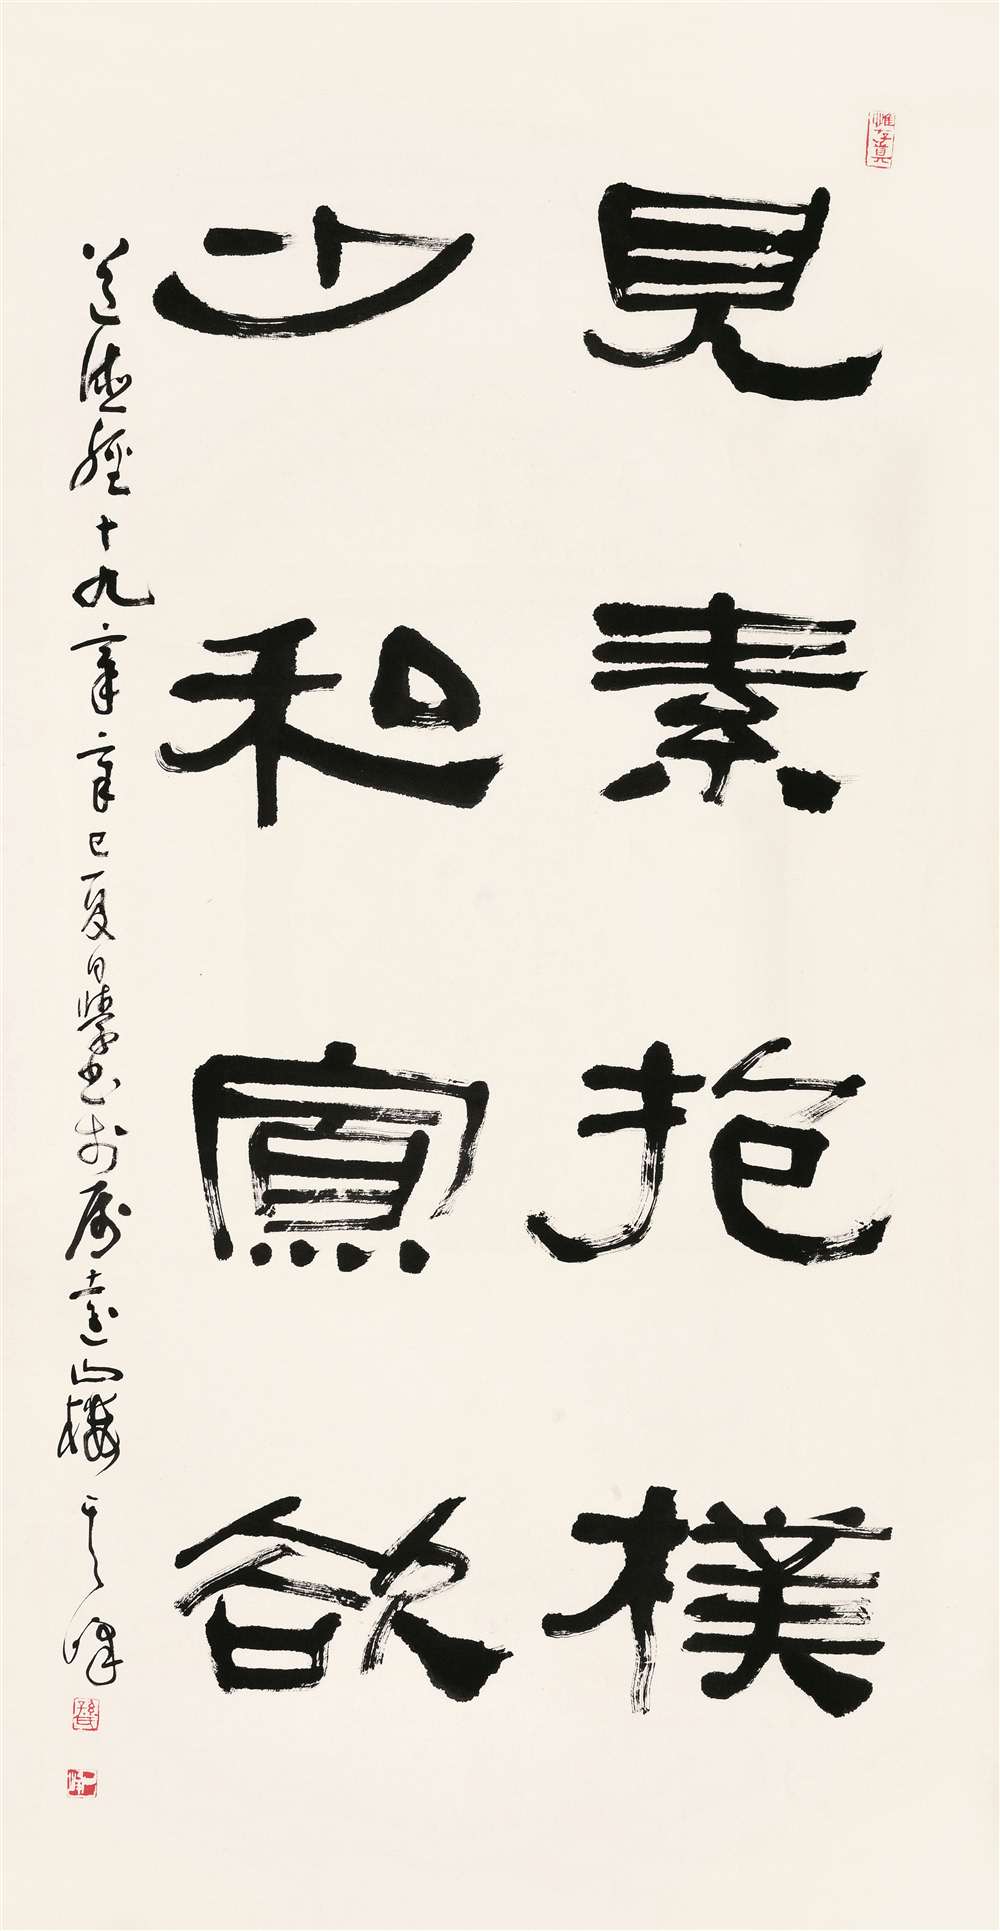 見素抱樸
少私寡欲
道德經十九章辛巳夏日書於遠山樓